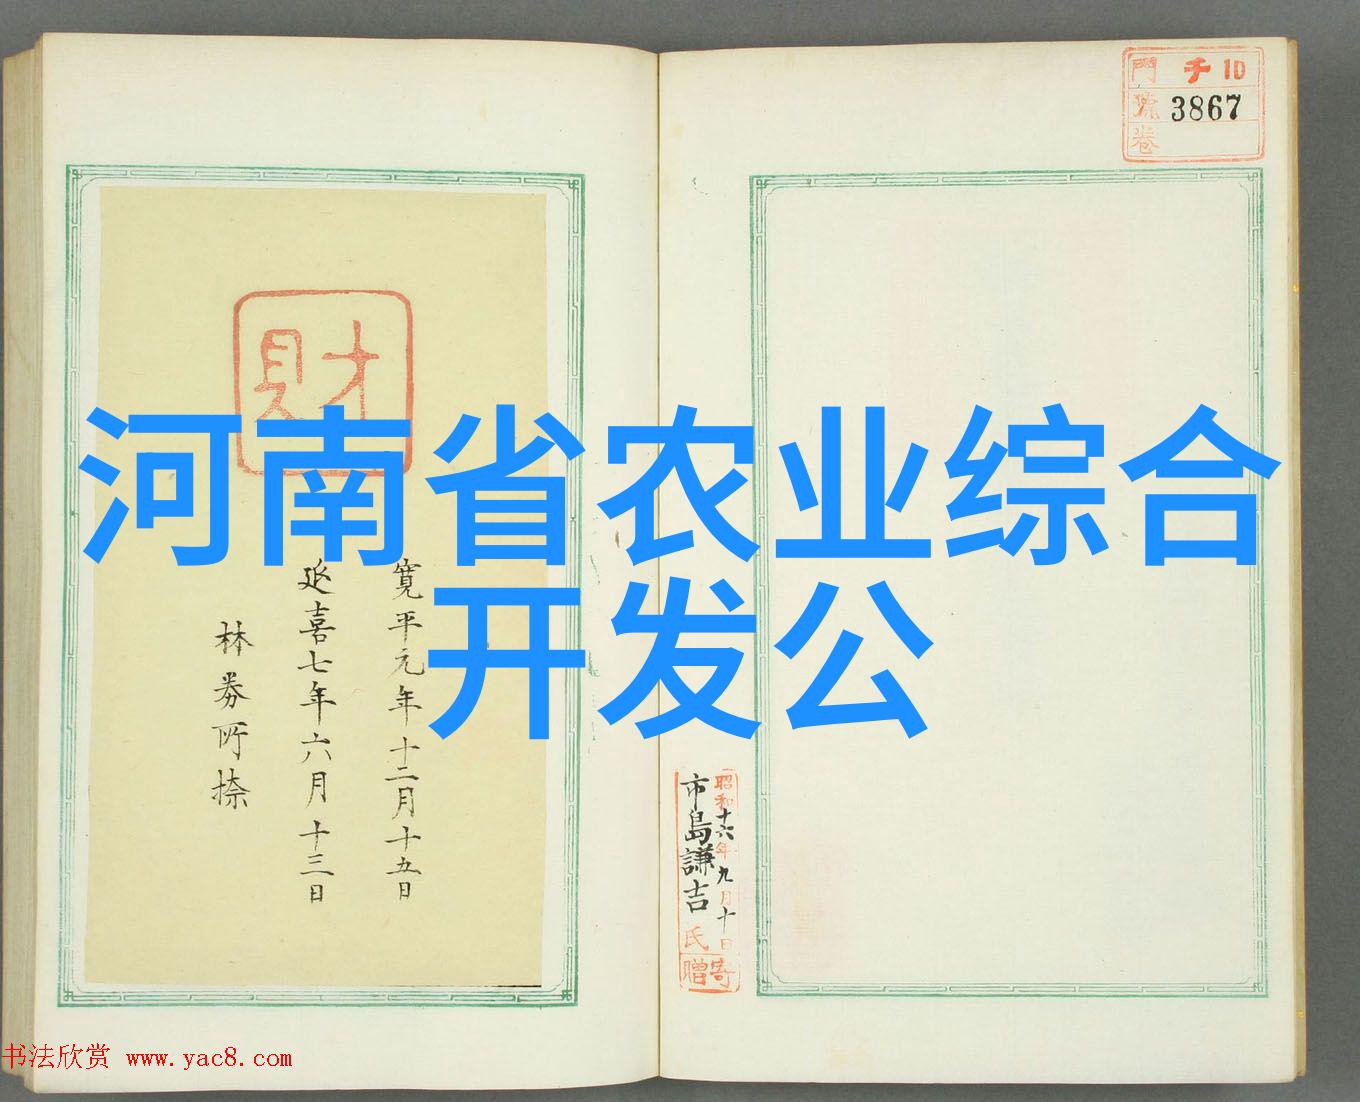 門 チ 10
號 3867
卷
財
河南省农业综合
开发公
寛平元年十二月十五日
延喜七年六月十三日
林
所
昭和十六年九月十日
市島謙吉氏
寄贈
书法欣赏 www.yac8.com